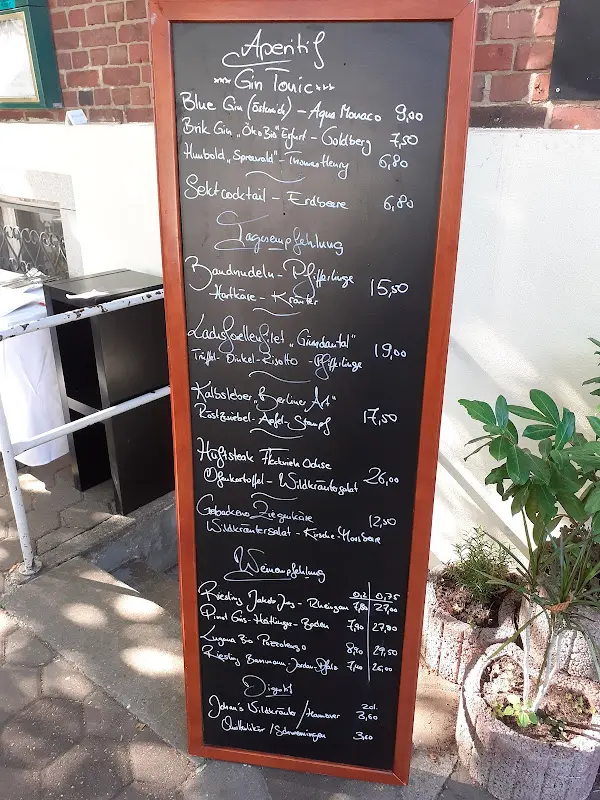 Aperitif
*** Gin Tonic ***
Blue Gin (Österreich) - Aqua Monaco 9,00
Brik Gin "Öko Bio" Erfurt - Goldberg 7,50
Humbold "Spreewald" - Thomas Henry 6,80
Sektcocktail - Erdbeere 6,80
Tagesempfehlung
Bandnudeln - Pfifferlinge 15,50
Hartkäse - Kräuter
Lachsforellenfilet "Gründautal" 19,00
Trüffel-Dinkel-Risotto - Pfifferlinge
Kalbsleber "Berliner Art" 17,50
Röstzwiebel - Apfel - Stampf
Hüftsteak Ochse 26,00
Ofenkartoffel - Wildkräutersalat
Gebackener Ziegenkäse 12,50
Wildkräutersalat - Kirsche
Weinempfehlung
0,2 0,75
Riesling Jakob Jung - Rheingau 7,80 27,00
Pinot Gris - Heitlinger - Baden 7,90 27,80
Lugana Bio 8,90 29,50
Riesling Jordan - Pfalz 7,40 26,00
Digestif
2cl.
Wildkräuter / Hannover 3,60
Quittenlikör /